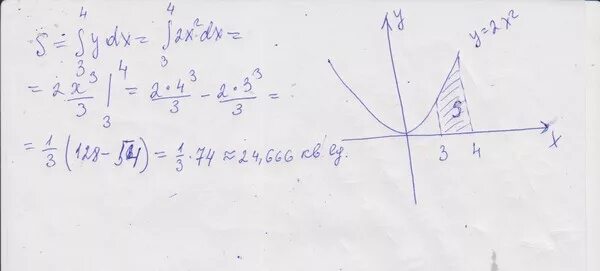 S = ∫₃⁴ y dx = ∫₃⁴ 2x² dx =
= 2 x³/3 |₃⁴ = 2·4³/3 − 2·3³/3 =
= 1/3 (128 − 54) = 1/3 · 74 ≈ 24,666 кв. ед.
y
y = 2x²
S
3 4 x